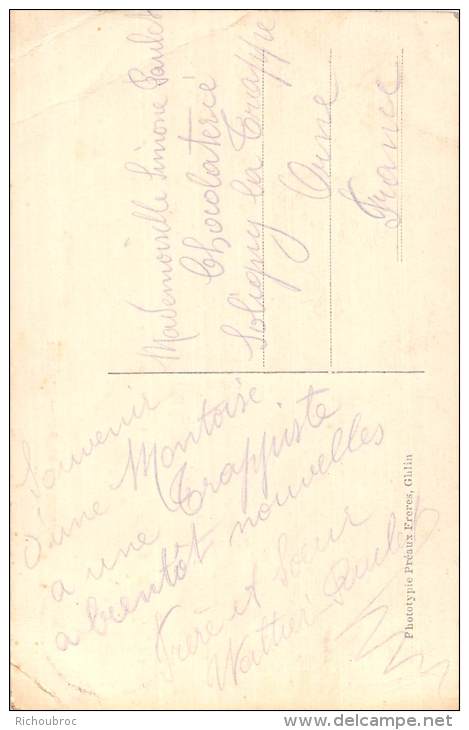 Souvenir
d'une Montoise
a une Trappiste
a bientôt nouvelles
Frère et Soeur
Walther Paulet
Mademoiselle Simone Paulet
Chocolaterie
Soligny la Trappe
Orne
France
Phototypie Préaux Freres, Ghlin
Richoubroc
delcampe.net